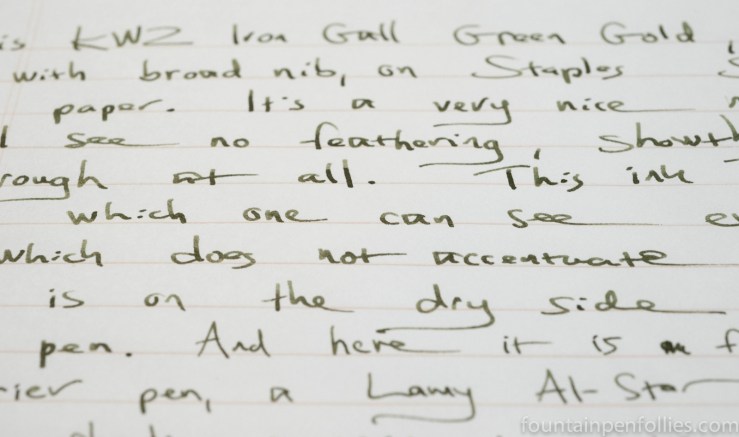 is KWZ Iron Gall Green Gold,
with broad nib, on Staples
paper. It's a very nice
see no feathering, showth
rough at all. This ink
which one can see
which does not accentuate
is on the dry side
pen. And here it is
rier pen, a Lamy Al-Star
fountainpenfollies.com